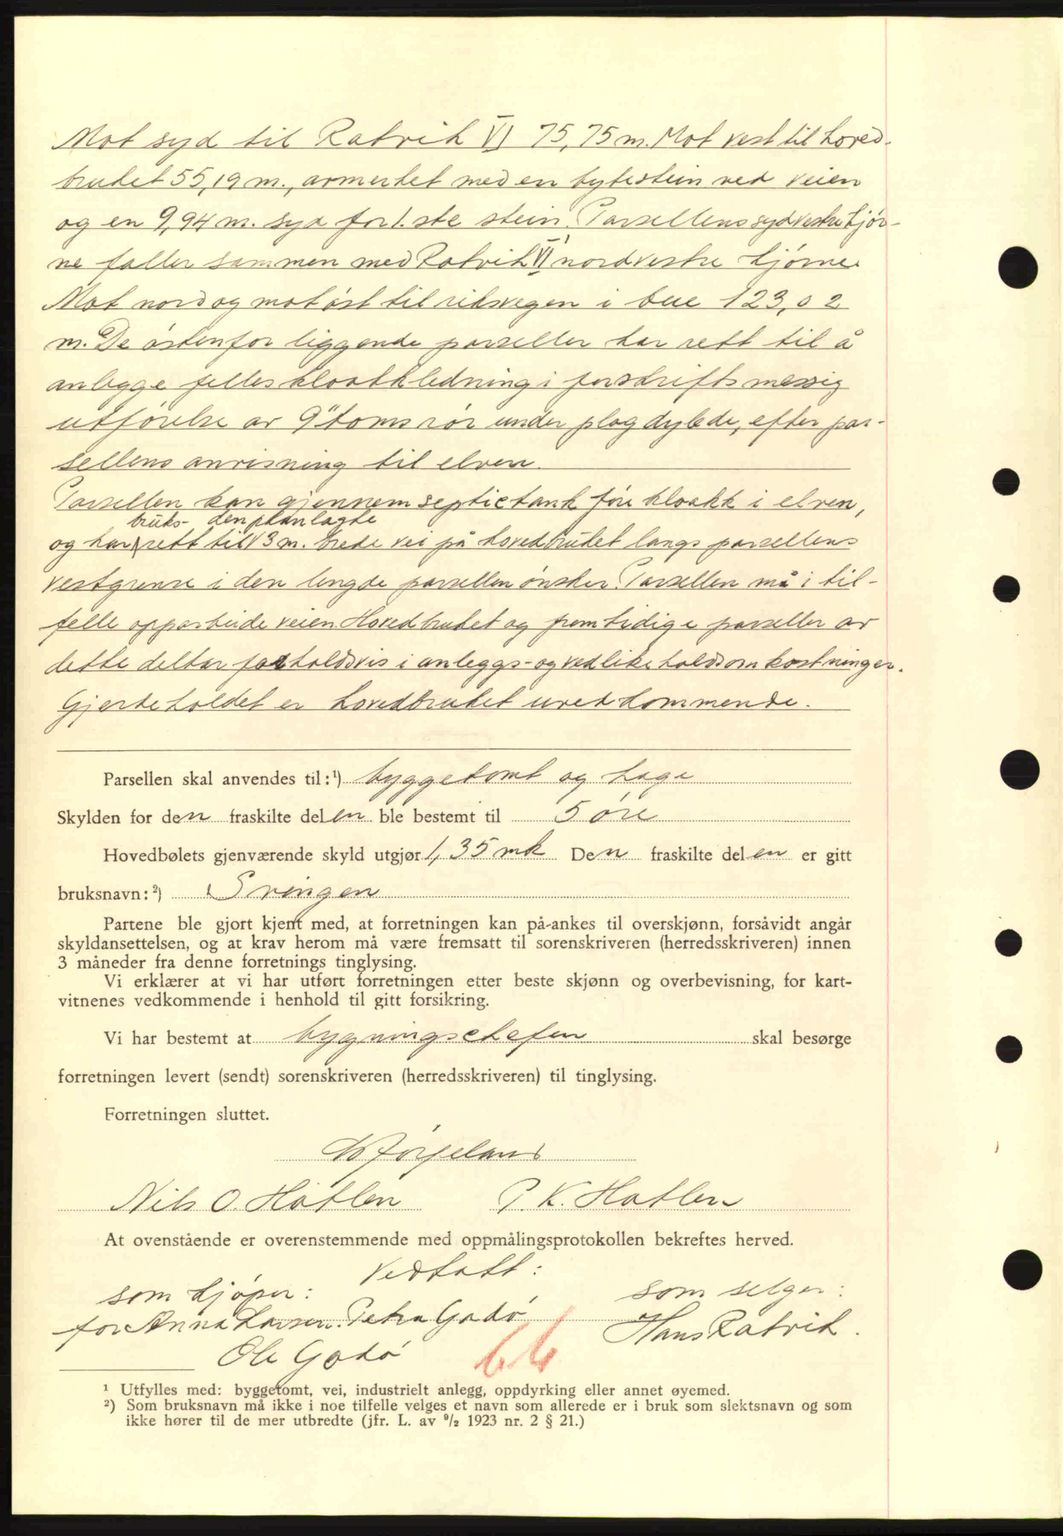 Mot syd til Ratvik VI 75,75 m. Mot vest til hoved-
bruket 55,19 m., avmerket med en bytestein ved veien
og en 9,94 m. syd for 1.ste stein. Parsellens sydvestre hjør-
ne faller sammen med Ratvik VI, nordvestre hjørne.
Mot nord og mot øst til riksvegen i bue 123,02
m. De østenfor liggende parseller har rett til å
anlegge felles kloakkledning i forskriftsmessig
utførelse av 9" toms rør under plogdybde, efter par-
sellens anvisning til elven.
Parsellen kan gjennem septictank føre kloakk i elven,
bruks- den planlagte
og har rett til 3 m. brede vei på hovedbruket langs parsellens
vestgrense i den lengde parsellen ønsker. Parsellen må i til-
felle opparbeide veien. Hovedbruket og fremtidige parseller av
dette deltar forholdsvis i anleggs- og vedlikeholdsomkostninger.
Gjerdeholdet er hovedbruket uvedkommende.
Parsellen skal anvendes til:¹) byggetomt og hage
Skylden for den fraskilte delen ble bestemt til 5 øre
Hovedbølets gjenværende skyld utgjør 1,35 mk Den fraskilte delen er gitt
bruksnavn:²) Svingen
Partene ble gjort kjent med, at forretningen kan på-ankes til overskjønn, forsåvidt angår
skyldansettelsen, og at krav herom må være fremsatt til sorenskriveren (herredsskriveren) innen
3 måneder fra denne forretnings tinglysing.
Vi erklærer at vi har utført forretningen etter beste skjønn og overbevisning, for kart-
vitnenes vedkommende i henhold til gitt forsikring.
Vi har bestemt at bygningschefen skal besørge
forretningen levert (sendt) sorenskriveren (herredsskriveren) til tinglysing.
Forretningen sluttet.
Nils O. Hatlen P. K. Hatlen
At ovenstående er overenstemmende med oppmålingsprotokollen bekreftes herved.
Vedtatt:
som kjøper: som selger:
for Anna Larsen. Petra Godø Hans Ratvik.
Ole Godø
¹ Utfylles med: byggetomt, vei, industrielt anlegg, oppdyrking eller annet øyemed.
²) Som bruksnavn må ikke i noe tilfelle velges et navn som allerede er i bruk som slektsnavn og som
ikke hører til de mer utbredte (jfr. L. av ⁹/₂ 1923 nr. 2 § 21.)